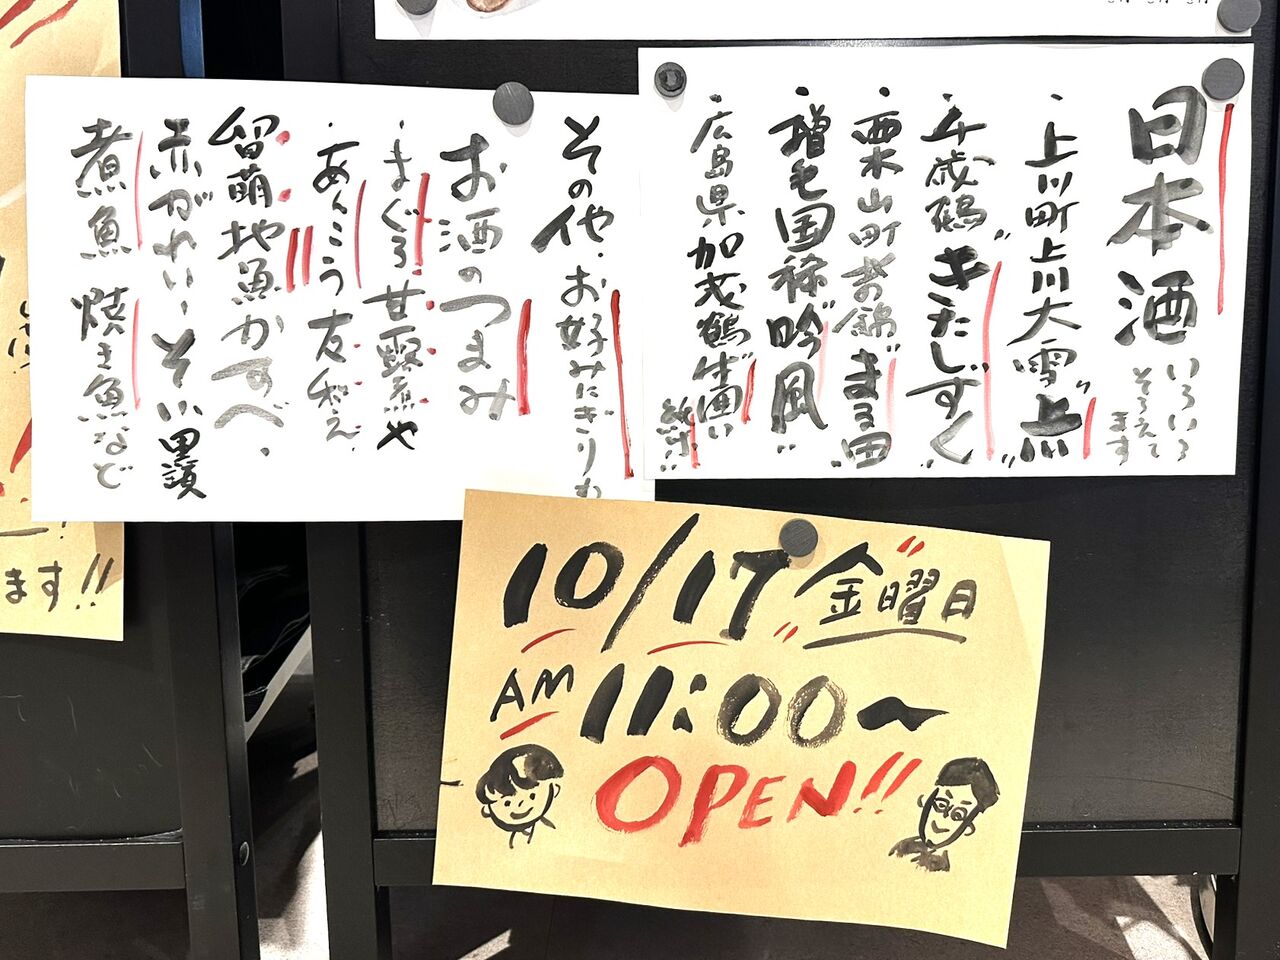 日本酒
いろいろ
そろえて
ます
・上川町上川大雪"上川"
・千歳鶴"きたしずく"
・栗山町 北の錦"まる田"
・増毛国稀"吟風"
・広島県加茂鶴生囲い
純米"
その他・お好みにぎりも
お酒のつまみ
・まぐろ甘露煮や
・あんこう友和え
留萌地魚かすべ、
赤がれい、そい、黒ゾイ
煮魚 焼き魚など
10/17 金曜日
AM 11:00〜
OPEN!!
ます!!